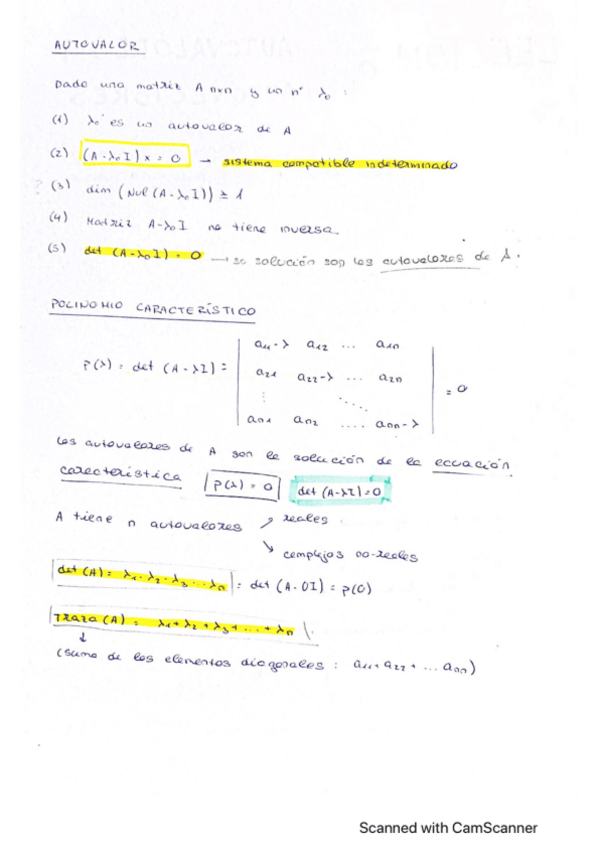 AUTOVALOR
Dado una matriz A nxn y un nº λ₀ :
(1) λ₀ es un autovalor de A
(2) (A - λ₀ I) x = 0 → sistema compatible indeterminado
? (3) dim (Nul (A - λ₀ I)) ≥ 1
(4) Matriz A - λ₀ I no tiene inversa.
(5) det (A - λ₀ I) = 0 → se solución son los autovalores de A.
POLINOMIO CARACTERÍSTICO
P(λ) = det (A - λI) = | a₁₁ - λ a₁₂ ... a₁n |
| a₂₁ a₂₂ - λ ... a₂n | = 0
| an₁ an₂ .... ann - λ |
Los autovalores de A son la solución de la ecuación
característica P(λ) = 0 det (A - λI) = 0
A tiene n autovalores ↗ reales
↘ complejos no-reales
det (A) = λ₁ · λ₂ · λ₃ ... λn = det (A - 0I) = p(0)
Traza (A) = λ₁ + λ₂ + λ₃ + ... + λn
↓
(suma de los elementos diagonales : a₁₁ + a₂₂ + ... ann)
Scanned with CamScanner